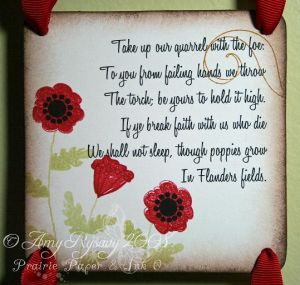 Take up our quarrel with the foe:
To you from failing hands we throw
The torch; be yours to hold it high.
If ye break faith with us who die
We shall not sleep, though poppies grow
In Flanders fields.
© Amy
Prairie Paper & Ink ©